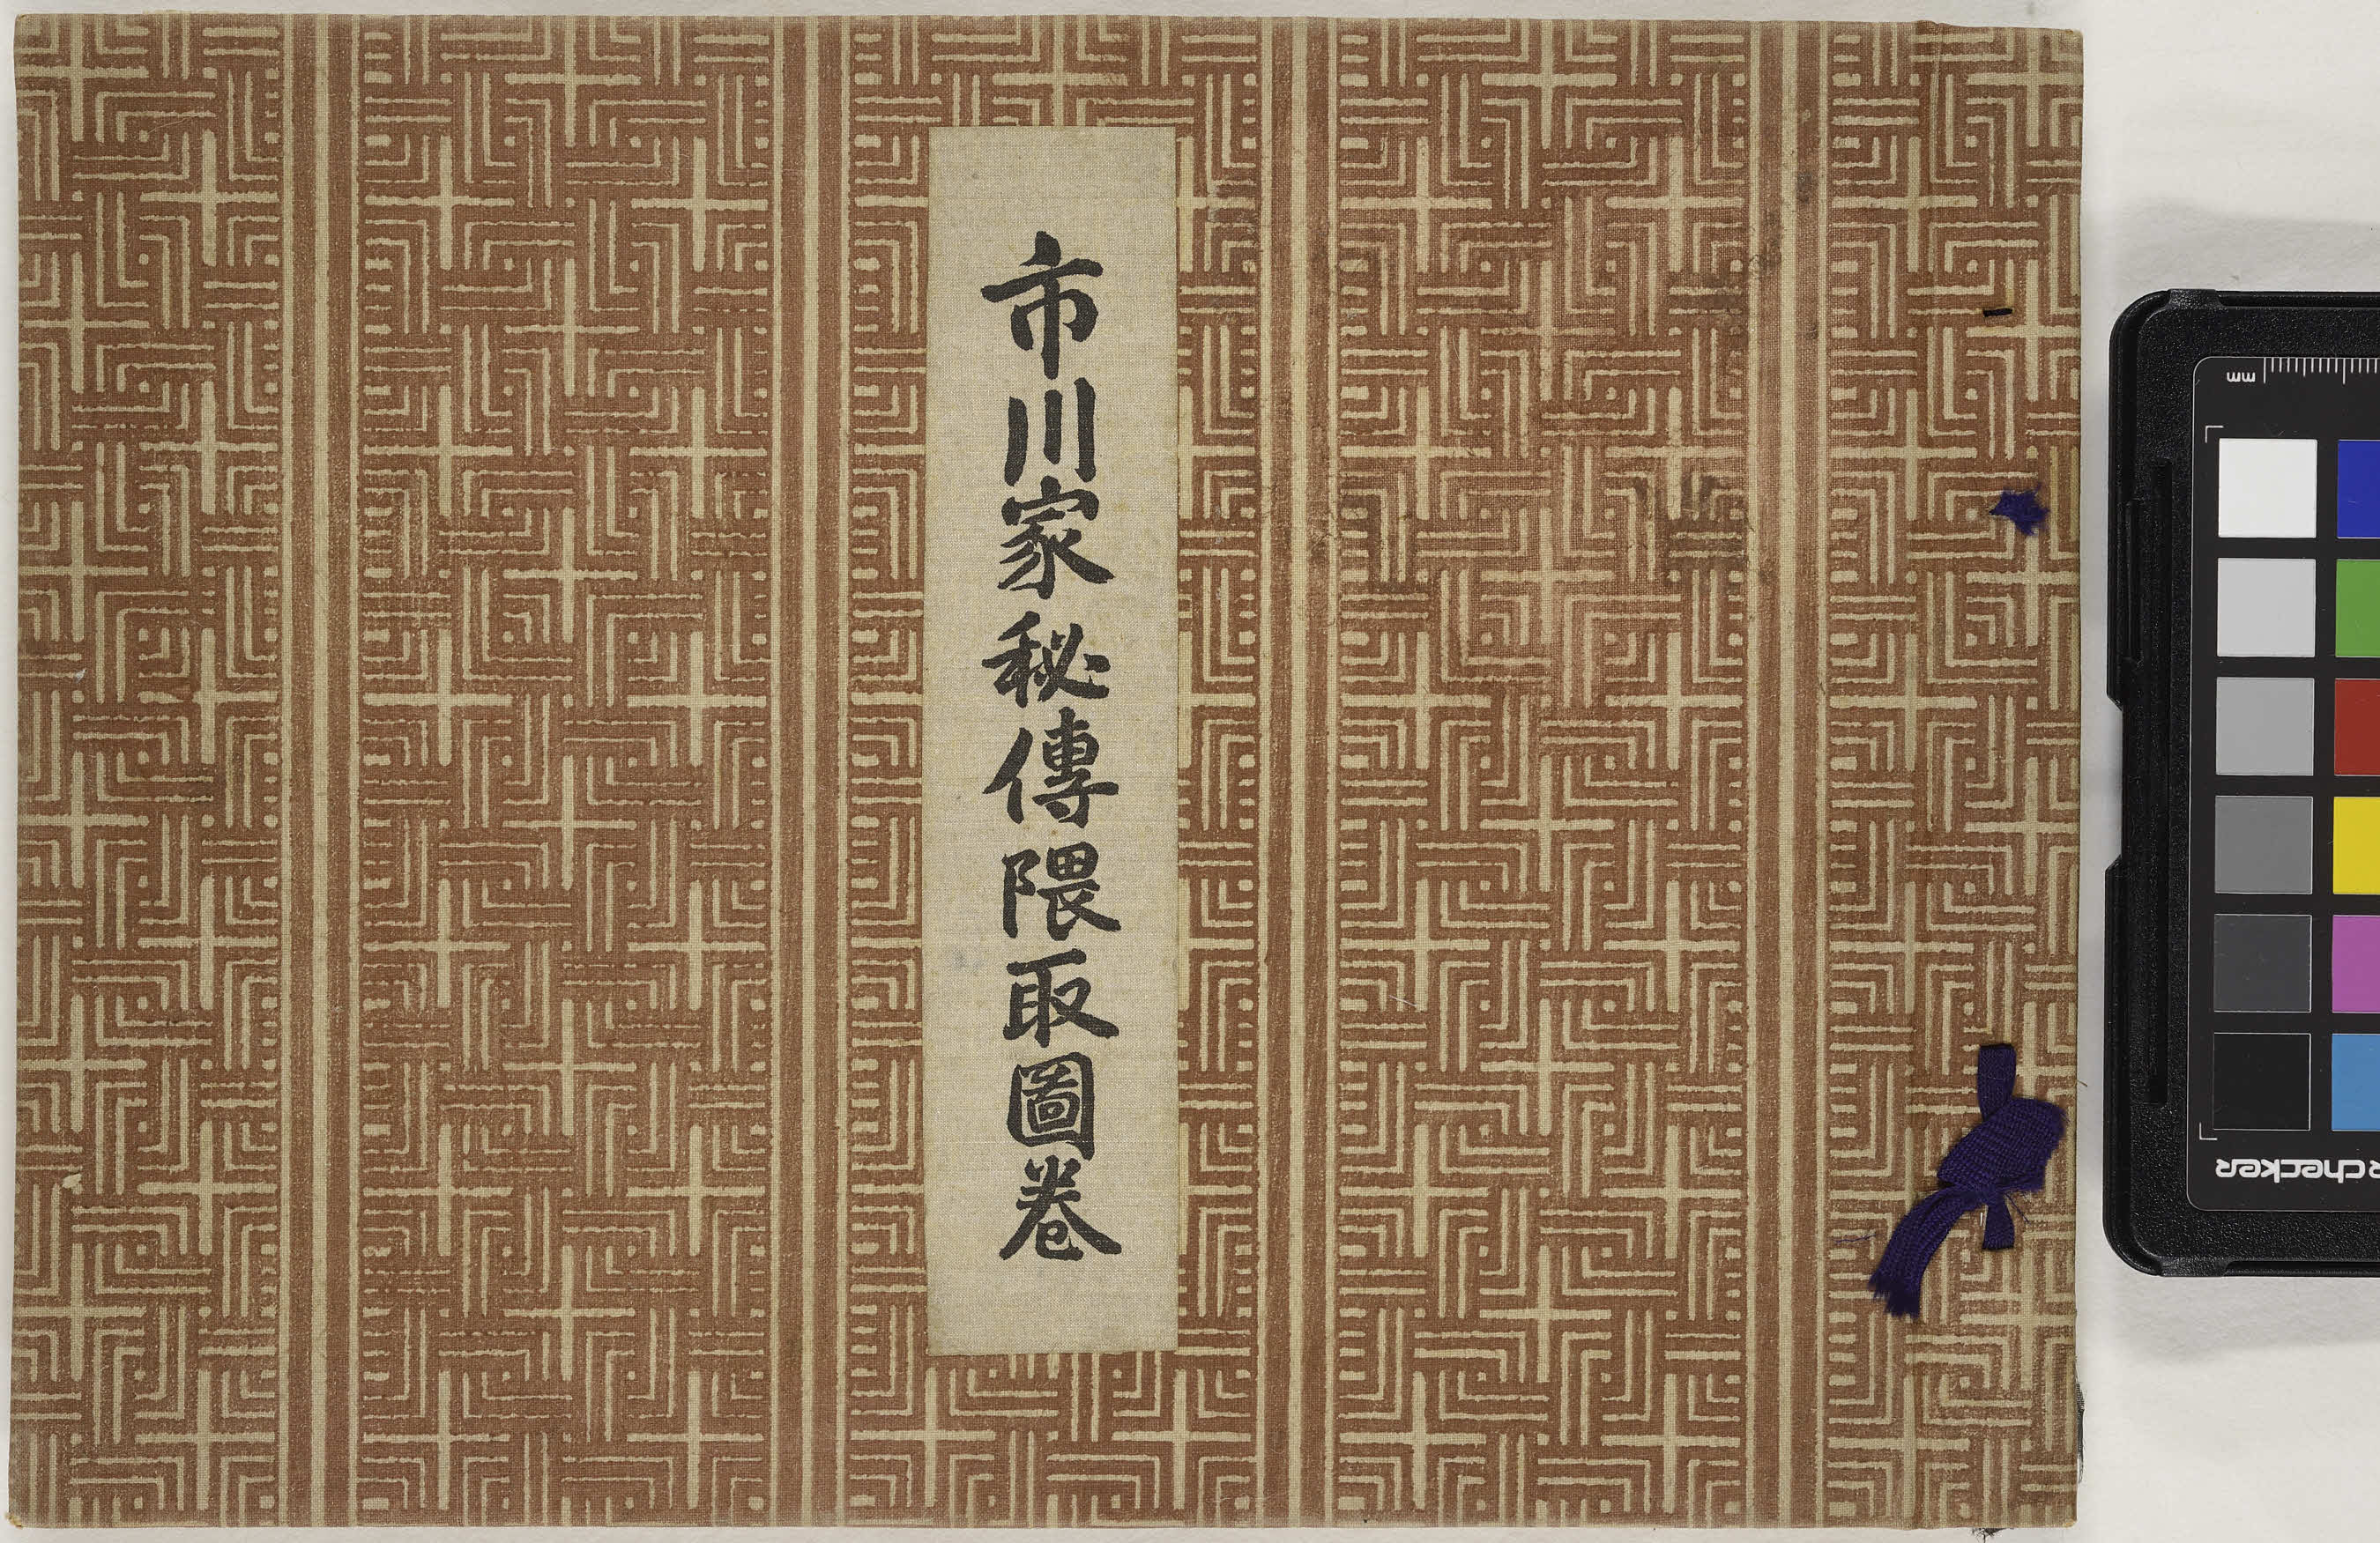 市川家秘傳隈取圖卷
mm
rchecker